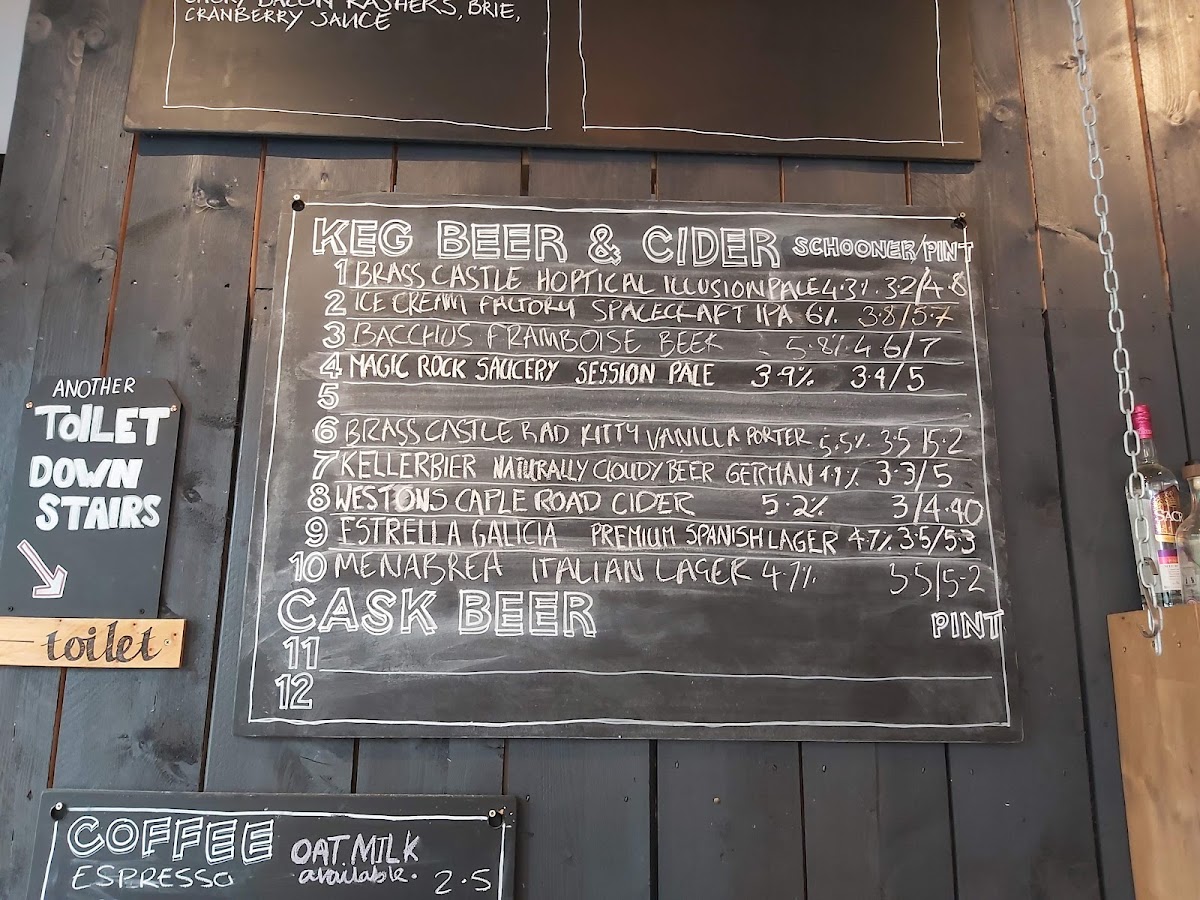 BACON RASHERS, BRIE,
CRANBERRY SAUCE
KEG BEER & CIDER SCHOONER/PINT
1 BRASS CASTLE HOPTICAL ILLUSION PALE 4.3% 3.2/4.8
2 ICE CREAM FACTORY SPACECRAFT IPA 6% 3.8/5.7
3 BACCHUS FRAMBOISE BEER 5.8% 4.6/7
4 MAGIC ROCK SAUCERY SESSION PALE 3.9% 3.4/5
5
6 BRASS CASTLE BAD KITTY VANILLA PORTER 5.5% 3.5/5.2
7 KELLERBIER NATURALLY CLOUDY BEER GERMAN 3.3/5
8 WESTONS CAPLE ROAD CIDER 5.2% 3/4.40
9 ESTRELLA GALICIA PREMIUM SPANISH LAGER 4.7% 3.5/5.3
10 MENABREA ITALIAN LAGER 4.7% 3.5/5.2
CASK BEER PINT
11
12
ANOTHER
TOILET
DOWN
STAIRS
toilet
COFFEE OAT MILK
available.
ESPRESSO 2.5